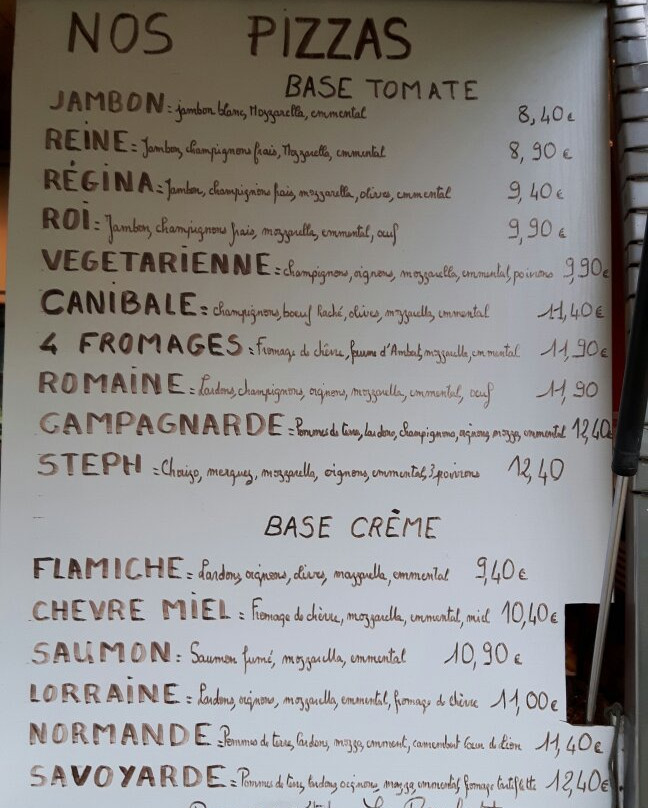 NOS PIZZAS
BASE TOMATE
JAMBON: jambon blanc, Mozzarella, emmental 8,40€
REINE: Jambon, champignons frais, Mozzarella, emmental 8,90€
RÉGINA: Jambon, champignons frais, mozzarella, olives, emmental 9,40€
ROI: Jambon, champignons frais, mozzarella, emmental, oeuf 9,90€
VEGETARIENNE: champignons, oignons, mozzarella, emmental, poivrons 9,90€
CANIBALE: champignons, boeuf haché, olives, mozzarella, emmental 11,40€
4 FROMAGES: Fromage de chèvre, fourme d'Ambert, mozzarella, emmental 11,90€
ROMAINE: Lardons, champignons, oignons, mozzarella, emmental, oeuf 11,90
CAMPAGNARDE: Pommes de terre, lardons, champignons, oignons, mozza, emmental 12,40€
STEPH: Chorizo, merguez, mozzarella, oignons, emmental, 3 poivrons 12,40
BASE CRÈME
FLAMICHE: Lardons, oignons, olives, mozzarella, emmental 9,40€
CHEVRE MIEL: Fromage de chèvre, mozzarella, emmental, miel 10,40€
SAUMON: Saumon fumé, mozzarella, emmental 10,90€
LORRAINE: Lardons, oignons, mozzarella, emmental, fromage de chèvre 11,00€
NORMANDE: Pommes de terre, lardons, mozza, emment, camembert Coeur de Lion 11,40€
SAVOYARDE: Pommes de terre, lardons, oignons, mozza, emmental, fromage tartiflette 12,40€